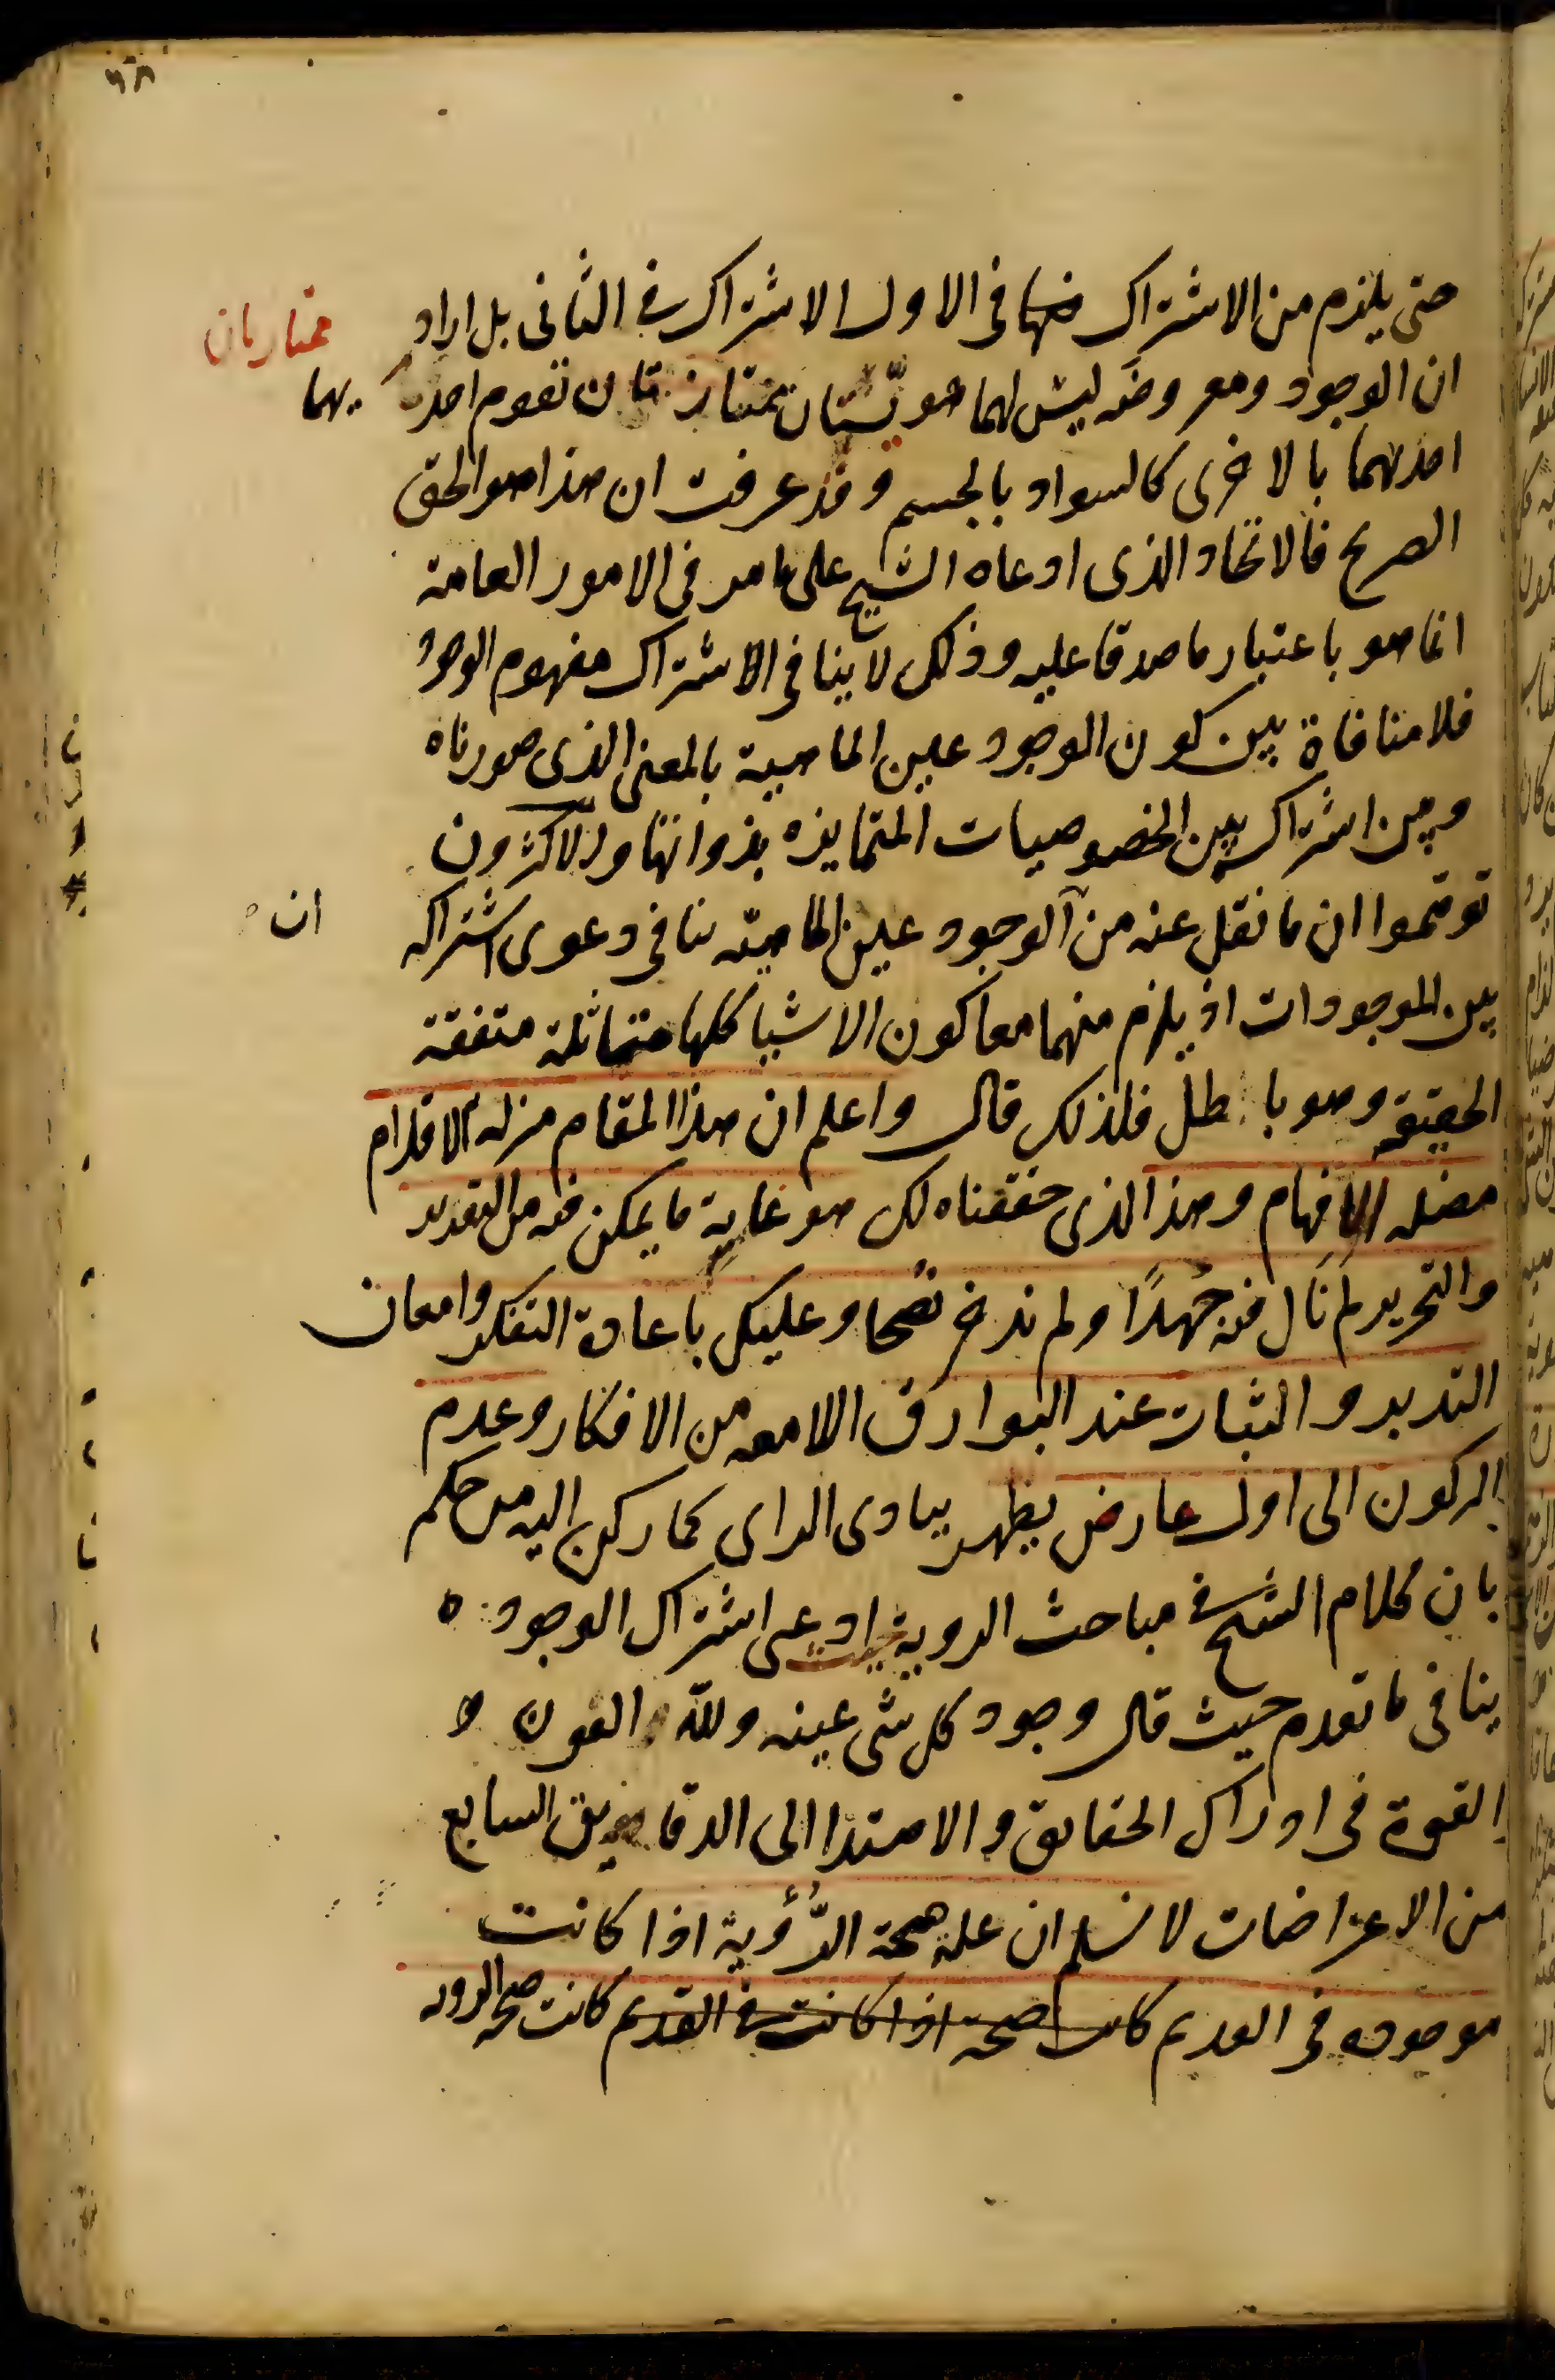 حتى يلزم من الاشتراك فيها في الاول الاشتراك في الثانى بل اراد
ممتازتان
ان الوجود ومعروضه ليس لهما هويّتان ممتازتان تقوم احد
يهما
احدهما بالاخرى كالسواد بالجسم وقد عرفت ان هذا هو الحق
الصريح فالاتحاد الذى ادعاه الشيخ على ما مر في الامور العامة
انما هو باعتبار ما صدقا عليه وذلك لا ينافى الاشتراك مفهوم الوجود
فلا منافاة بين كون الوجود عين الماهية بالمعنى الذى صورناه
وبين اشتراك بين الخصوصيات المتمايزه بذواتها والاكثرون
توهّموا ان ما نقل عنه من الوجود عين الماهيّه ينافى دعوى اشتراكه
ان
بين الموجودات اذ يلزم منهما معا كون الاشيا كلها متماثلة متفقة
الحقيقه وهو باطل فلذلك قال واعلم ان هذا المقام مزله الاقدام
مضله الافهام وهذا الذى حققناه لك هو غاية ما يمكن فيه من التقدير
والتحرير لم نال فيه جُهدًا ولم ندخر نصحا وعليك باعادة التفكر وامعان
التدبر والثبات عند البوارق اللامعه من الافكار وعدم
الركون الى اول عارض يظهر ببادى الراى كما ركن اليه من حكم
بان كلام الشيخ في مباحث الروية ادعى اشتراك الوجود
ينافى ما تقدم حيث قال وجود كل شى عينه ولله العون و
القوة في ادراك الحقايق والاهتدا الى الدقايق السابع
من الاعتراضات لا نسلم ان علة صحة الرُّؤية اذا كانت
موجوده في القديم كانت صحة اذا كانت في القديم كانت صحة الرويه